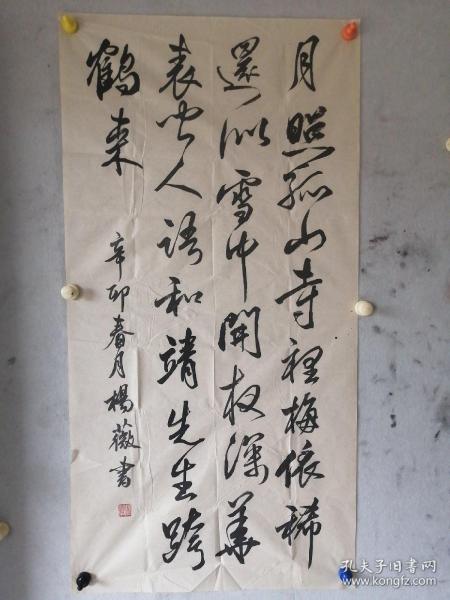 月照孤山寺裡梅依稀
還似雪中開夜深華
表聞人語和靖先生跨
鶴来
辛卯春月楊薇書
孔夫子旧书网
www.kongfz.com